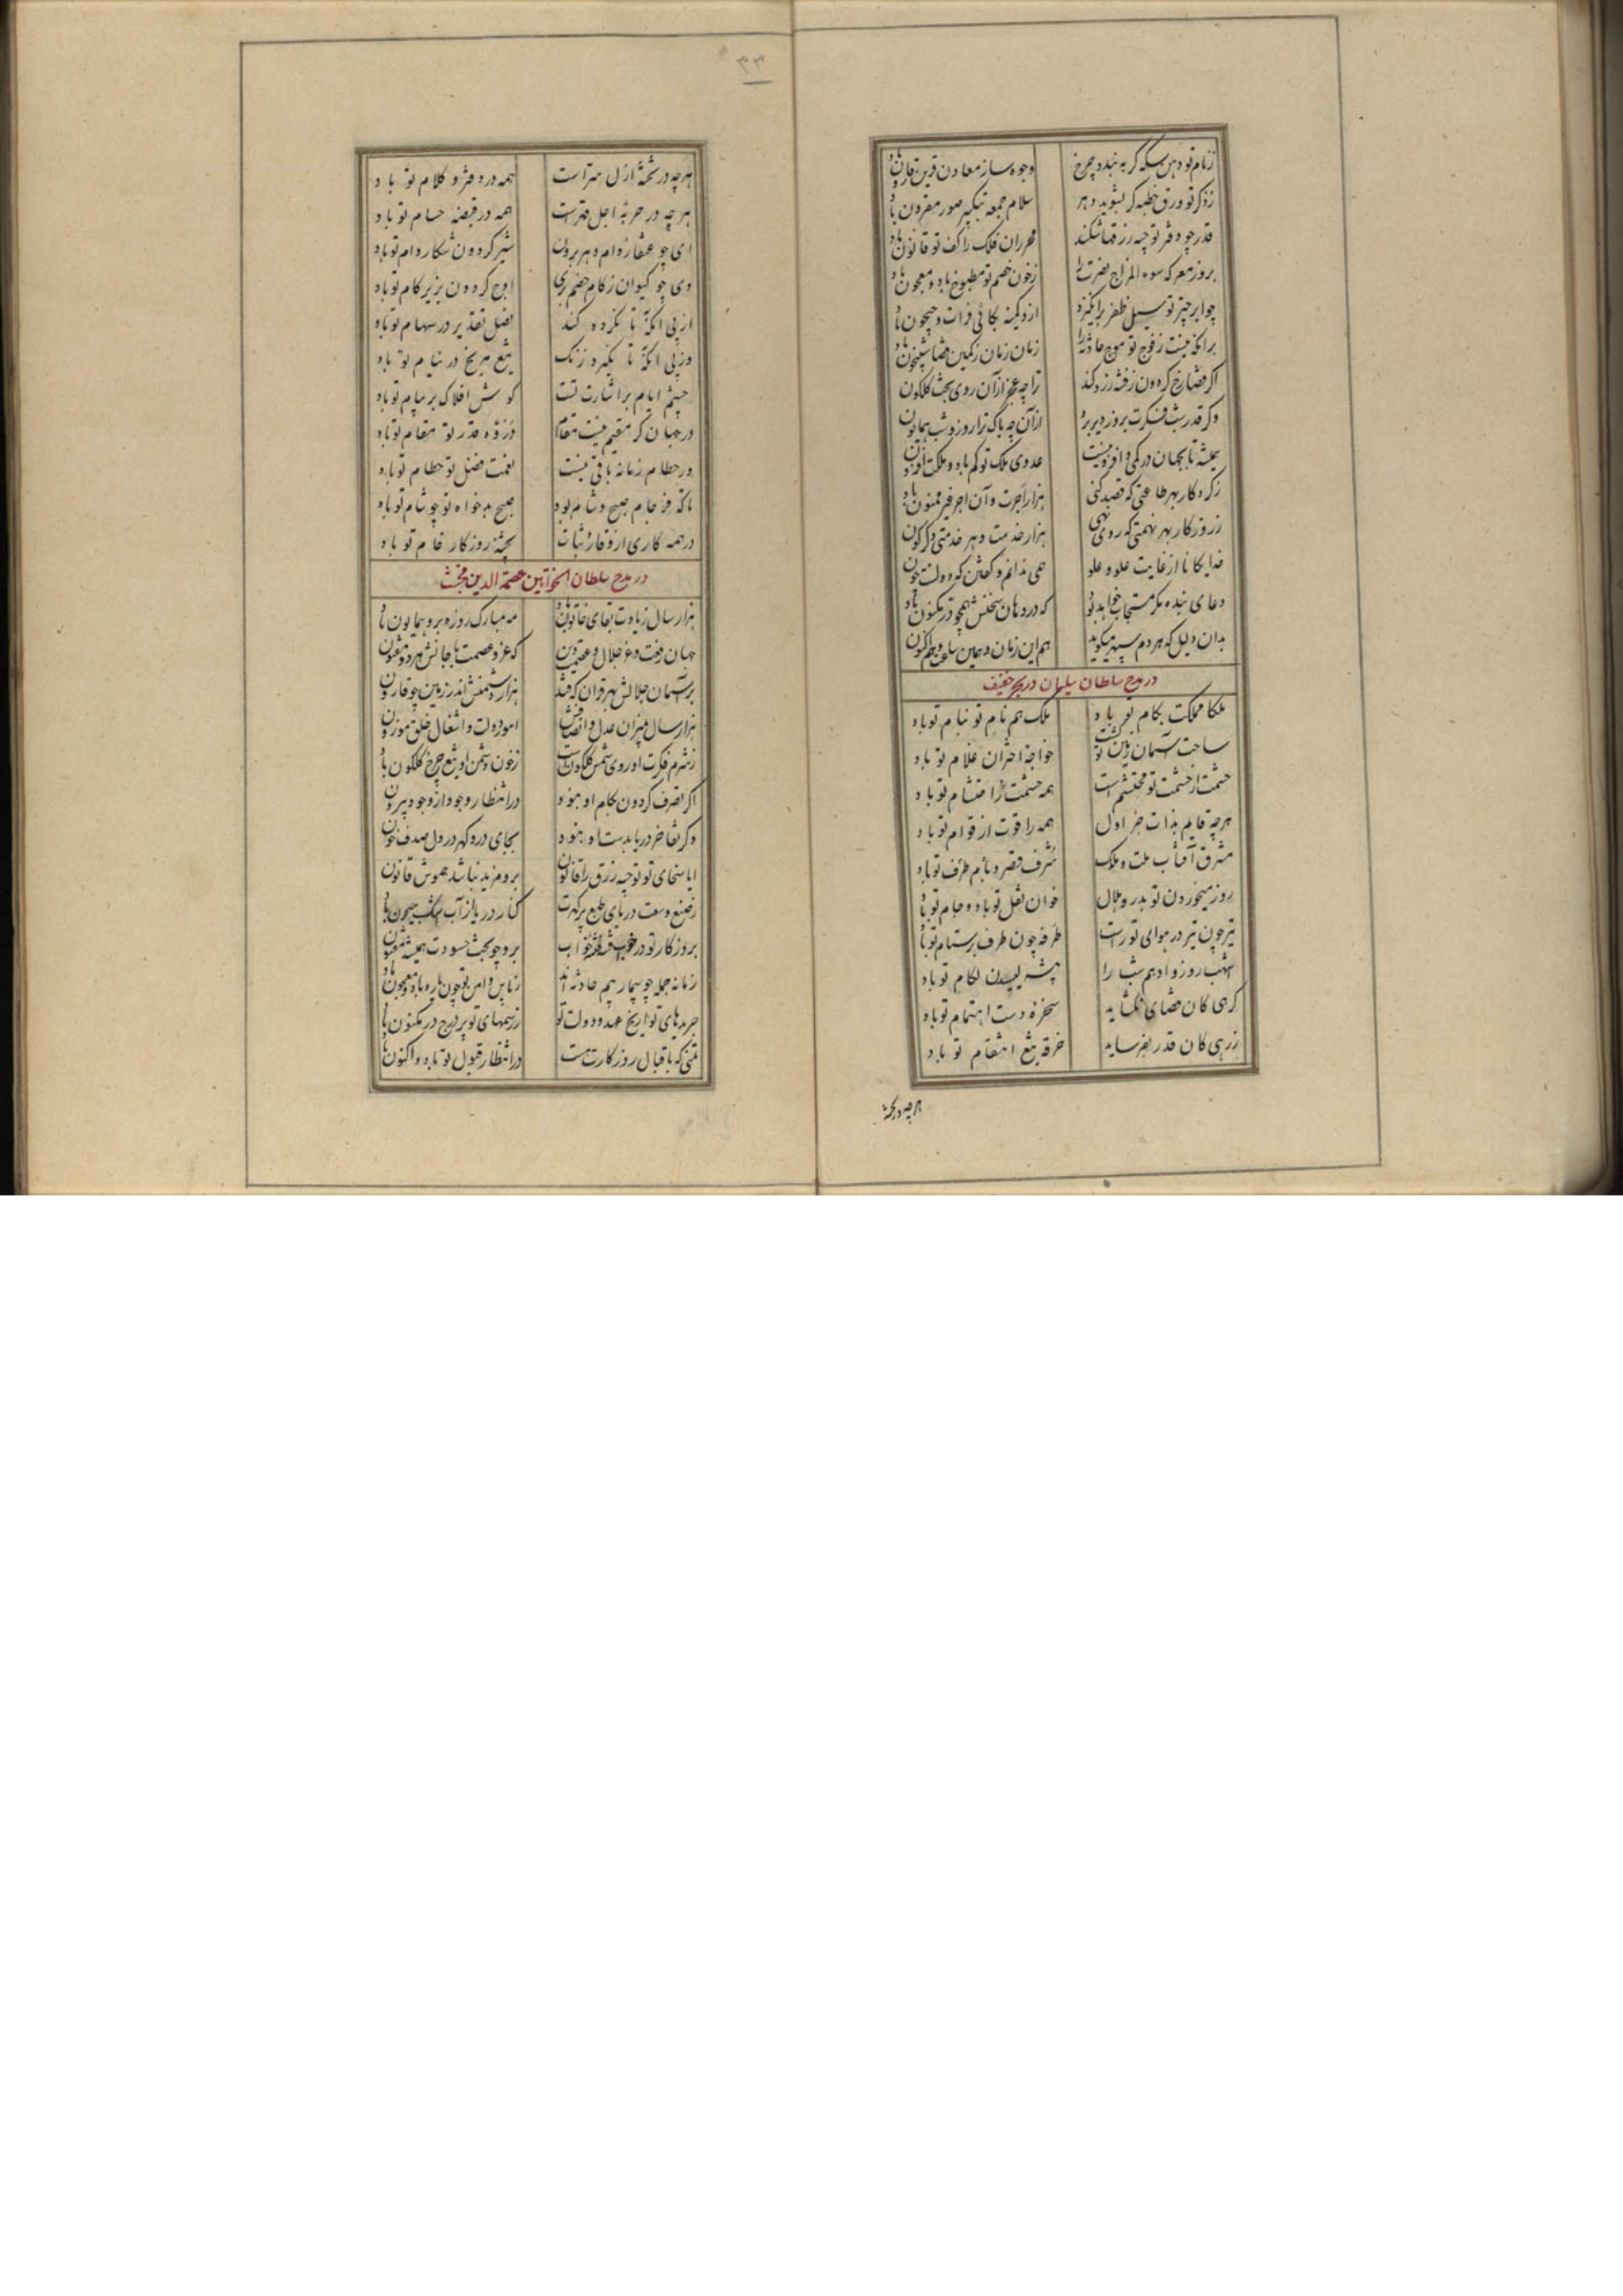 زنام تو دهن سکه گر به بندد چرخ وجوه ساز معادن قرین قارون باد
ز ذکر تو ورق خطبه گر بشوید دهر سلام جمعه به تکبیر صور مقرون باد
قدر چو دفتر توجیه رزقها شکند محرران فلک را کف تو قانون باد
بروز معرکه سوء المزاج نصرت را زخون خصم تو مطبوخ باد و معجون باد
چو ابر چتر تو سیل ظفر برانگیزد ازو کمینه تکابی فرات و جیحون باد
برانکه نیست زفوج تو موج حادثه را زمان زمان زکمین قضا شبیخون باد
اگر قضا رخ گردون زفتنه زرد کند ترا چه عجز از آن روی بخت گلگون
وگر قدر شب فکرت بروز دیر برد از آن چه باک ترا روز و شب همایون
همیشه تا بجهان در کمی و افزونیست عدوی ملک تو کم باد و ملکت افزون
ز کردگار بهر طاعتی که قصد کنی هزار اجرت و آن اجر غیر ممنون باد
ز روزگار بهر نهمتی که روی نهی هزار خدمت و هر خدمتی دگرگون
خدایگانا از غایت علو و علو همی ندانم و گفتن که دولتت چون
دعای بنده مگر مستجاب خواهد بود که در دهان سخنش همچو در مکنون باد
بدان دلیل که هر دم سپهر میگوید هم این زمان و همین ساعت و هم اکنون
در مدح سلطان سلیمان در بحر خفیف
ملکا مملکت بکام تو باد ملک هم نام تو بنام تو باد
ساحت آسمان زمین تو گشت خواجه اختران غلام تو باد
حشمت از حشمت تو محتشم است همه حشمت ز احتشام تو باد
هرچه قایم بذات جز اول همه را قوت از قوام تو باد
مشرق آفتاب ملت و ملک شرف قصر و بام طرف تو باد
روز میخوردن تو بدر و هلال خوان نقل تو باد و جام تو باد
تیر چون تیر در هوای تو راست طرفه چون طرف بر ستام تو باد
اشهب روز و ادهم شب را پشه لیسدن لگام تو باد
گرهی کان قضای نگشاید سخره دست اهتمام تو باد
زرهی کان قدر نفرساید خرقه تیغ انتقام تو باد
هرچه در تخته
۳۳
هرچه در تخته ازل سراست همه در دفتر و کلام تو باد
هر چه در حربه اجل قهرست همه در قبضه حسام تو باد
ای چو عنقا ز دام دهر برون شیر گردون شکار دام تو باد
وی چو کیوان ز کام خصم بری اوج گردون بزیر کام تو باد
از پی انکه تا نگردد کند نصل تقدیر در سهام تو باد
وز پی انکه تا نگیرد زنگ تیغ مریخ در نیام تو باد
چشم ایام بر اشارت تست گوش افلاک بر پیام تو باد
در جهان گر مقیم نیست مقام ذروه قدر تو مقام تو باد
ور حطام زمانه باقی نیست نعمت فضل تو حطام تو باد
تا که فرجام صبح و شام بود صبح بدخواه تو چو شام تو باد
در همه کاری از وقار و ثبات پخته روزگار خام تو باد
در مدح سلطان الخواتین عصمة الدین مجتث
هزار سال زیادت بقای خاتون باد مه مبارک روزه برو همایون باد
جهان رفعت و عز جلال و عصمت دین که عز و عصمت با جانش هر دو مقرون
بر آسمان جلالش بهر قران که فتد هزار دشمنش اندر زمین چو قارون
هزار سال بمیزان عدل و انصافش امور دولت و اشغال خلق موزون
ز شرم فکرت او روی شمس گلگونست ز خون دشمن او تیغ چرخ گلگون باد
اگر تصرف گردون بکام او نبود در انتظار وجود از وجود بیرون
وگر تفاخر دریا بدست او نبود بجای در و گهر در دل صدف خون
ایا سخای تو توجیه رزق را قانون برو مزید نباشد هموش قانون
ز صنع وسعت دریای طبع پر گهرت کنار دریا از آب چشم جیحون باد
بروزگار تو در خواب فتنه بخواب برو چو بخت حسودت همیشه مفتون
زمانه جمله چو بیمار بیم حادثه اند ز پاس و امن تو چون باره باد و معجون باد
جریدهای تواریخ عهد و دولت تو ز رسمهای تو پر درج در مکنون باد
تمنی که باقبال روزگارت هست در انتظار قبول تو باد و اکنون باد